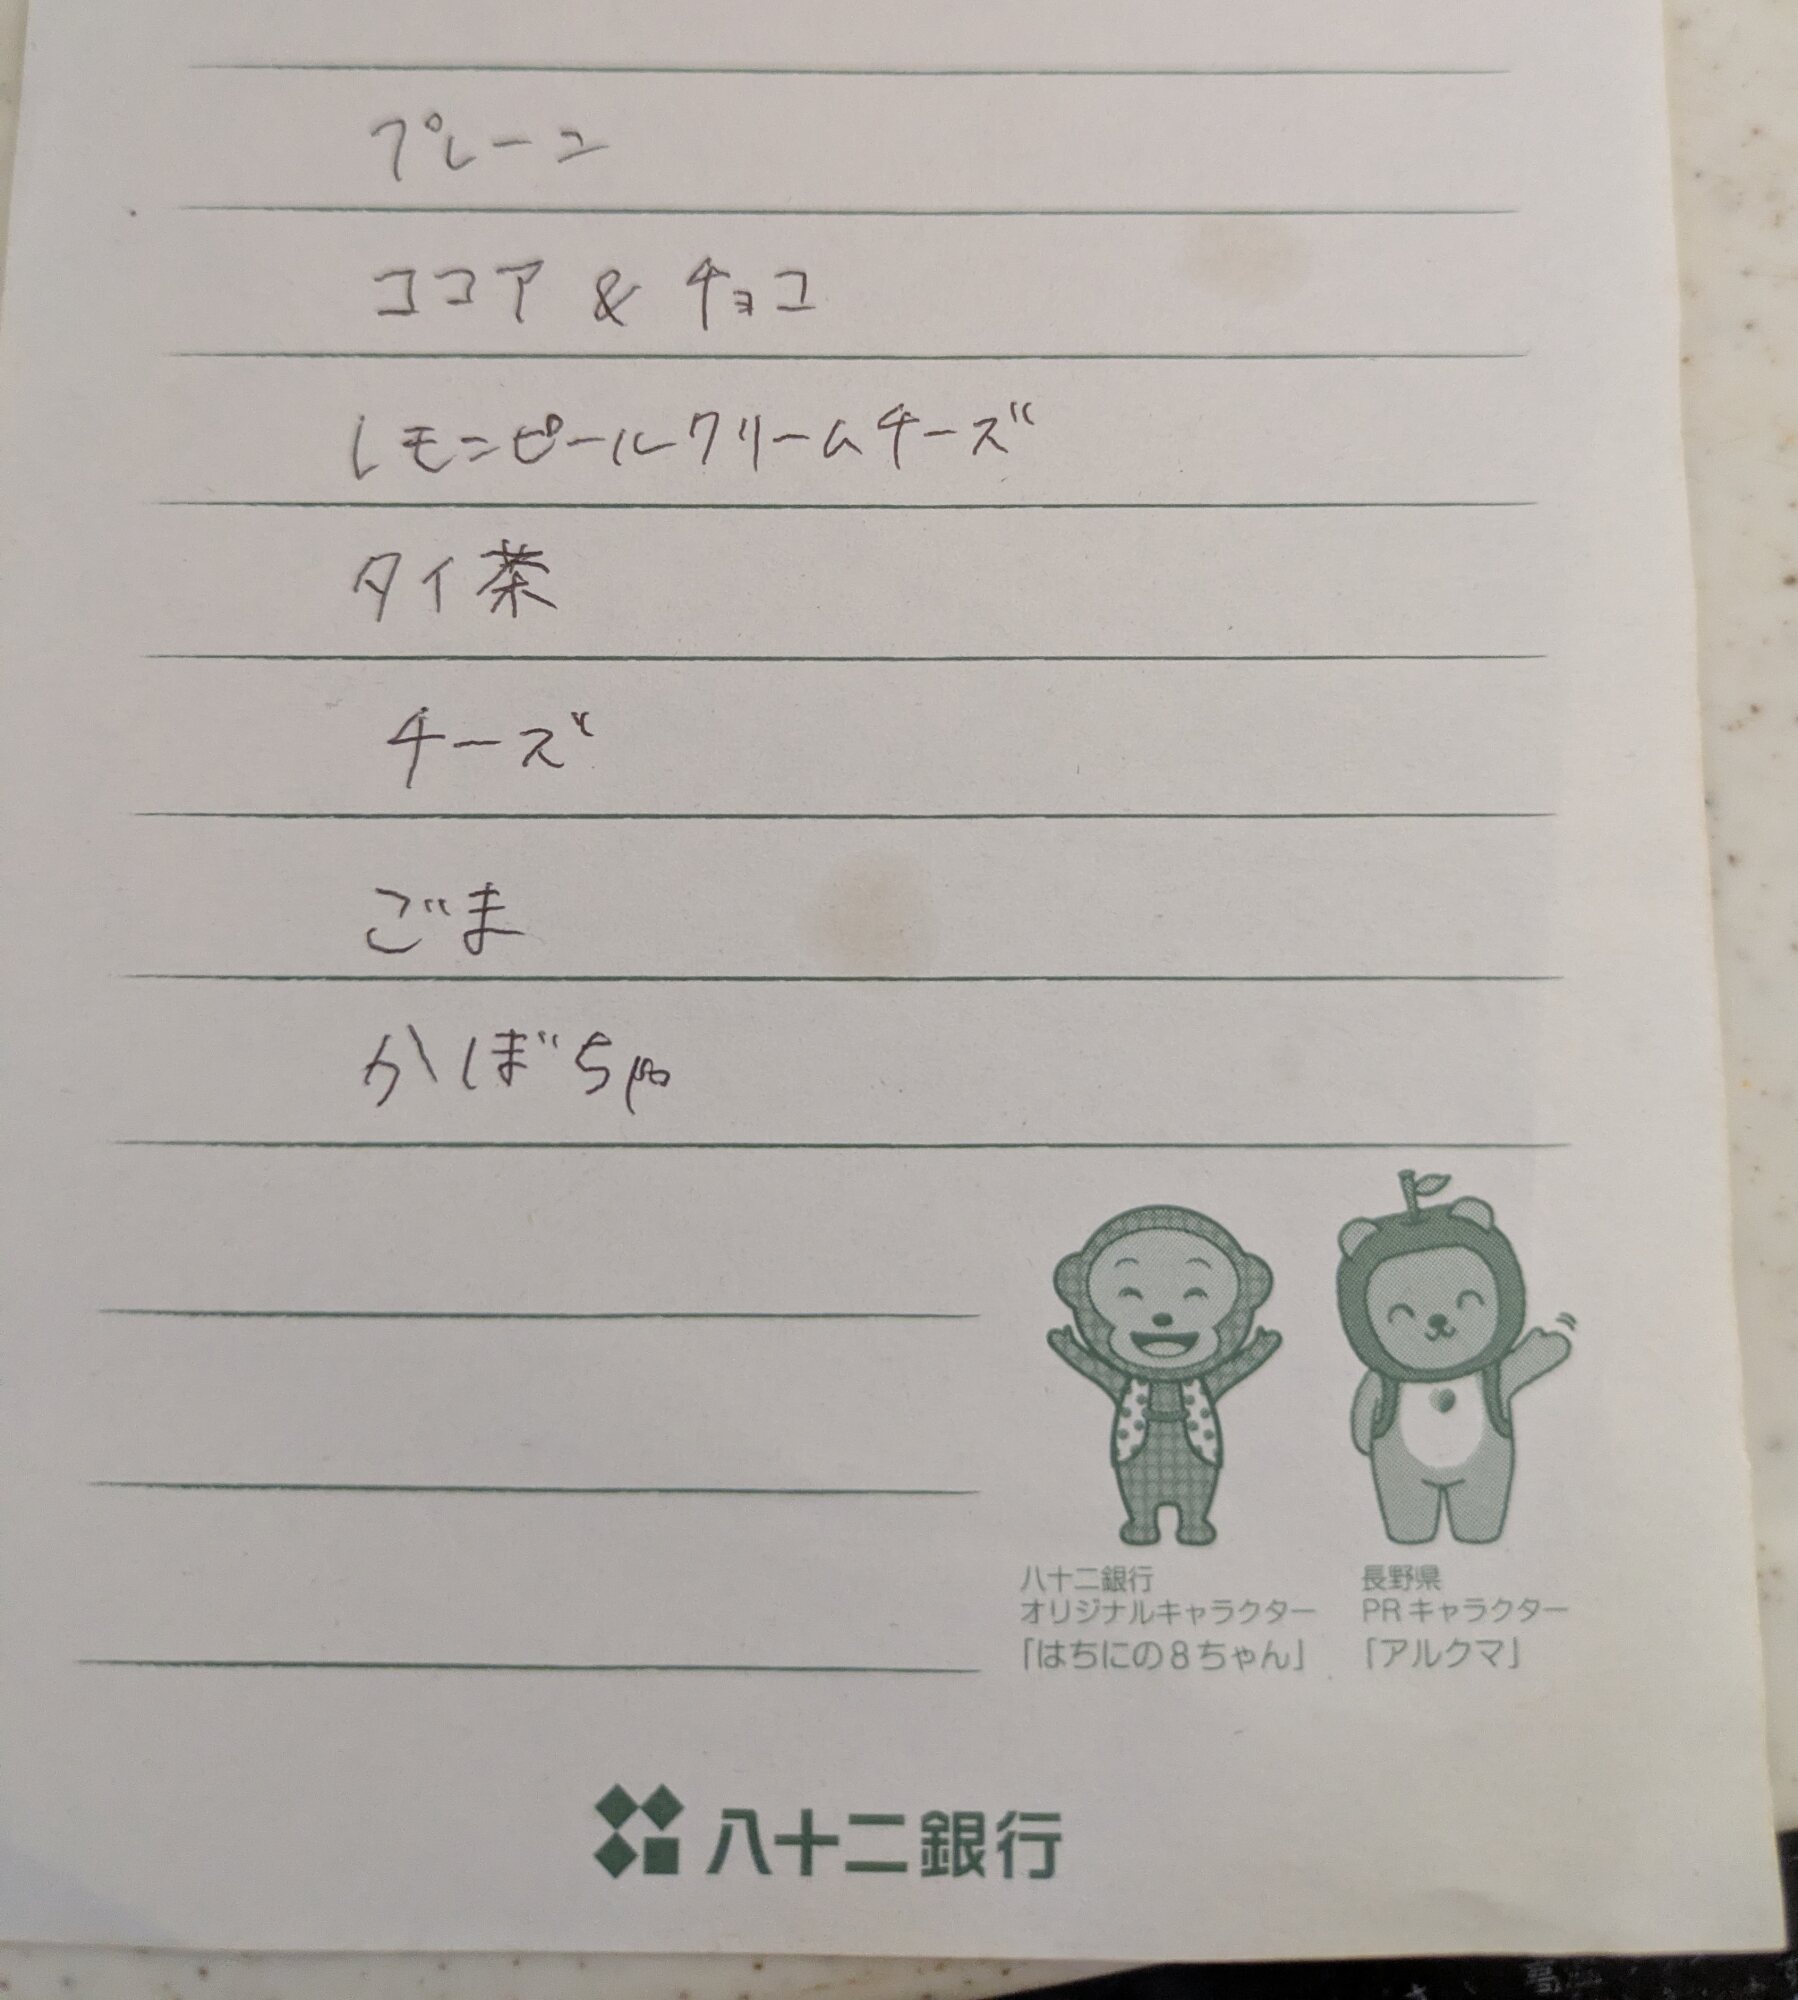 プレーン
ココア & チョコ
レモンピールクリームチーズ
タイ茶
チーズ
ごま
かぼちゃ
八十二銀行
オリジナルキャラクター
「はちにの8ちゃん」
長野県
PRキャラクター
「アルクマ」
八十二銀行